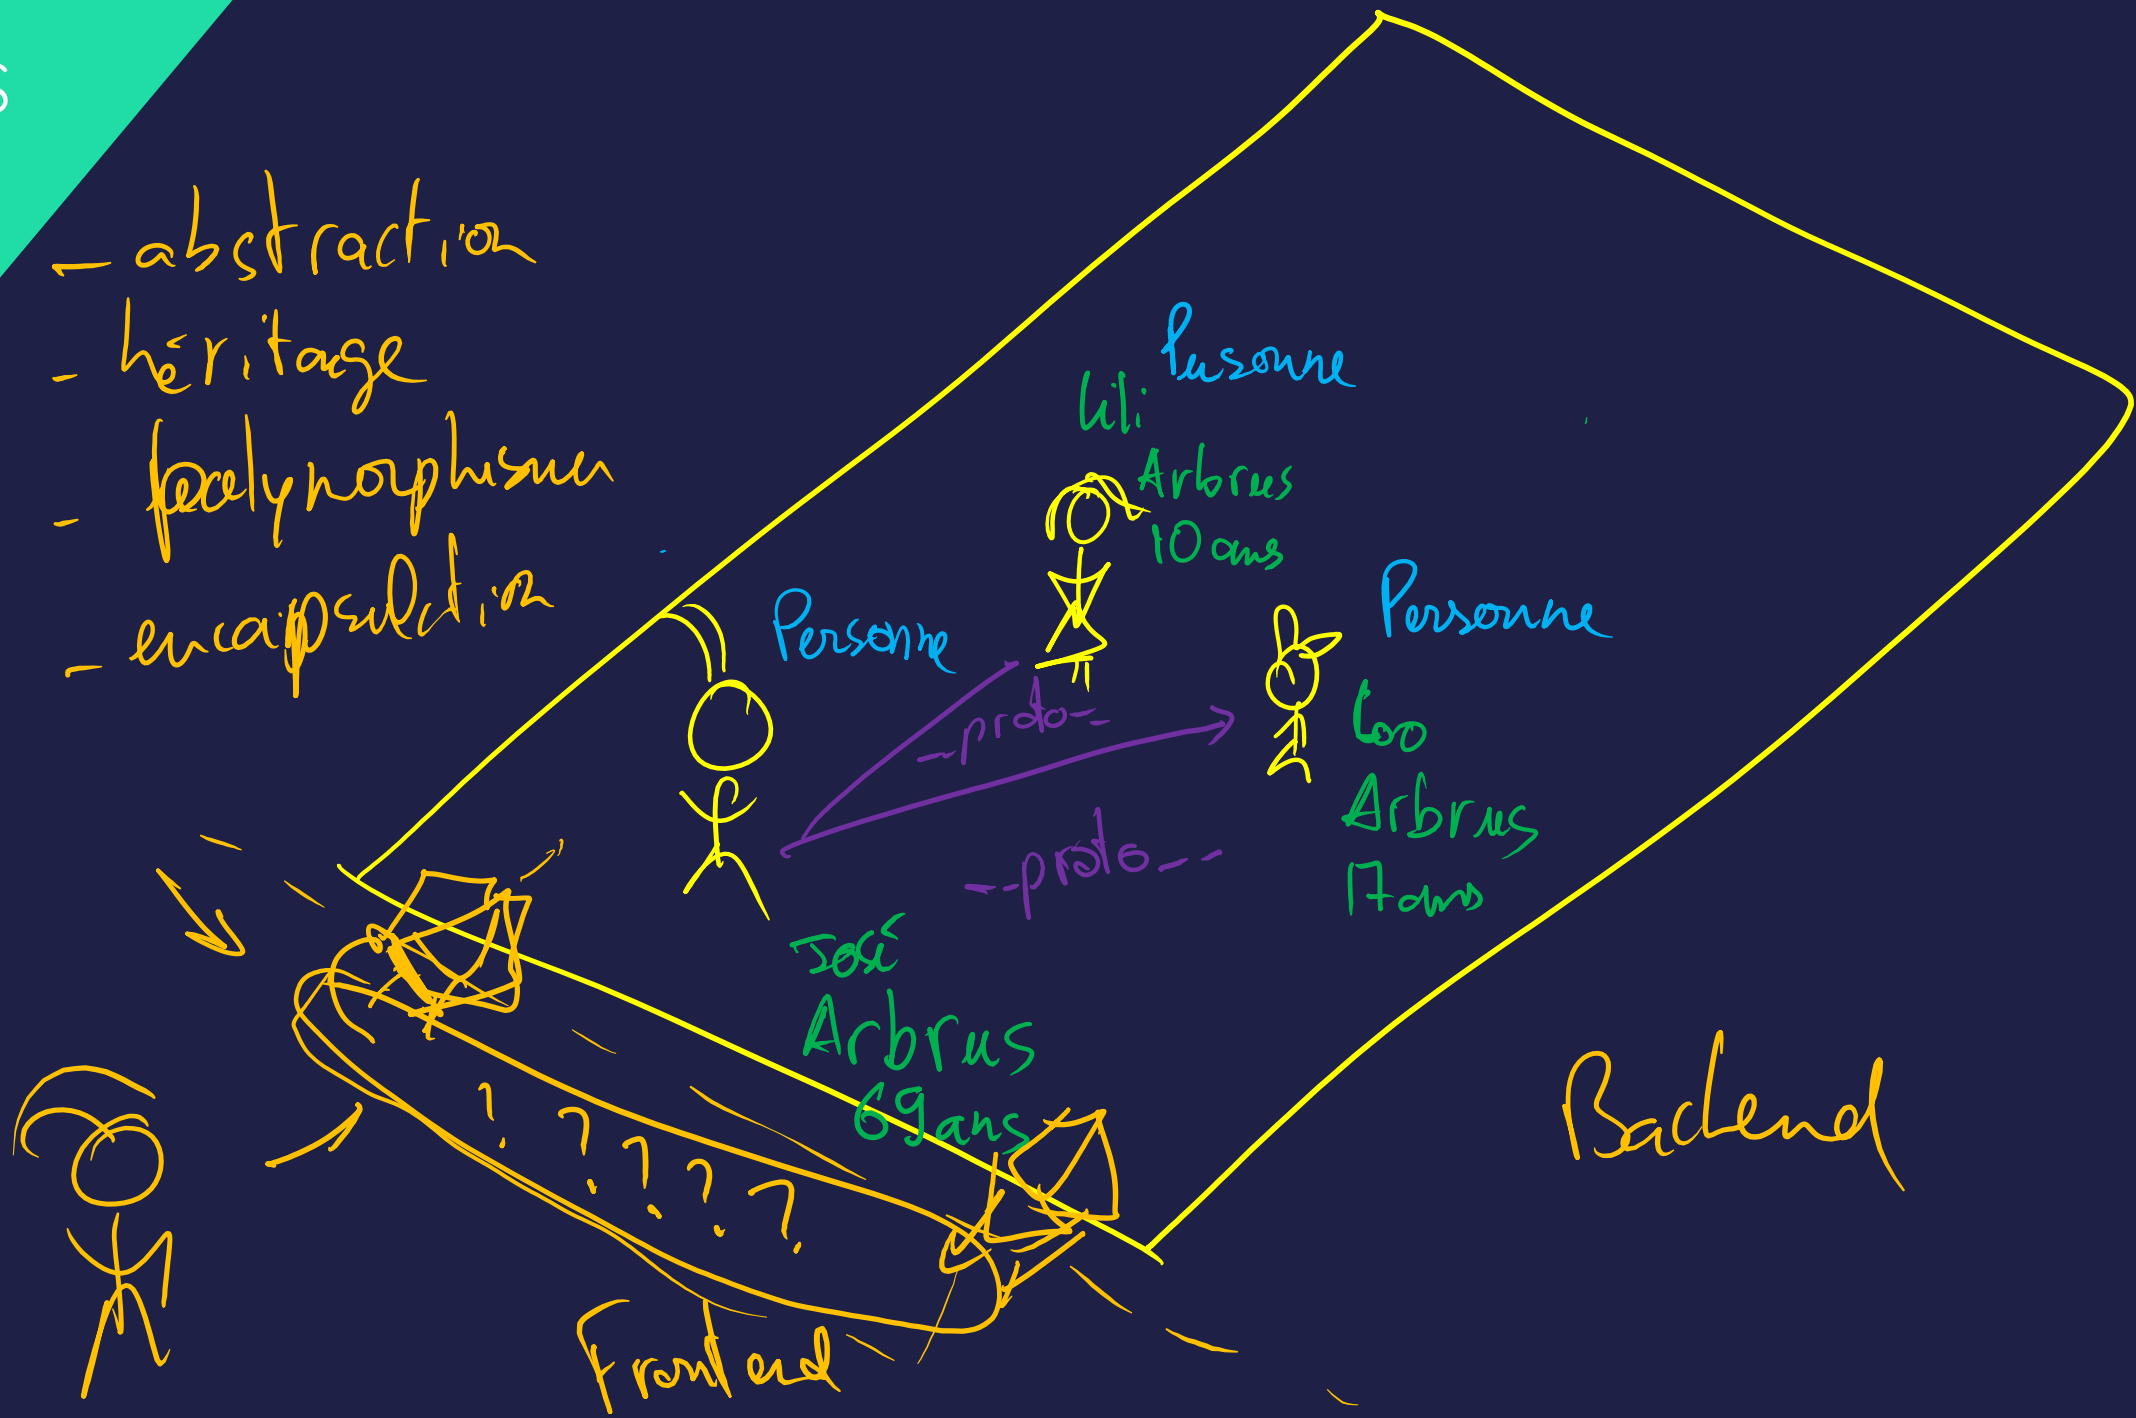 s
- abstraction
- héritage
- polymorphisme
- encapsulation
Personne
Lili
Arbrus
10 ans
Personne
Personne
Loo
Arbrus
17 ans
--proto--
--proto--
José
Arbrus
69 ans
? ? ? ? ?
Frontend
Backend